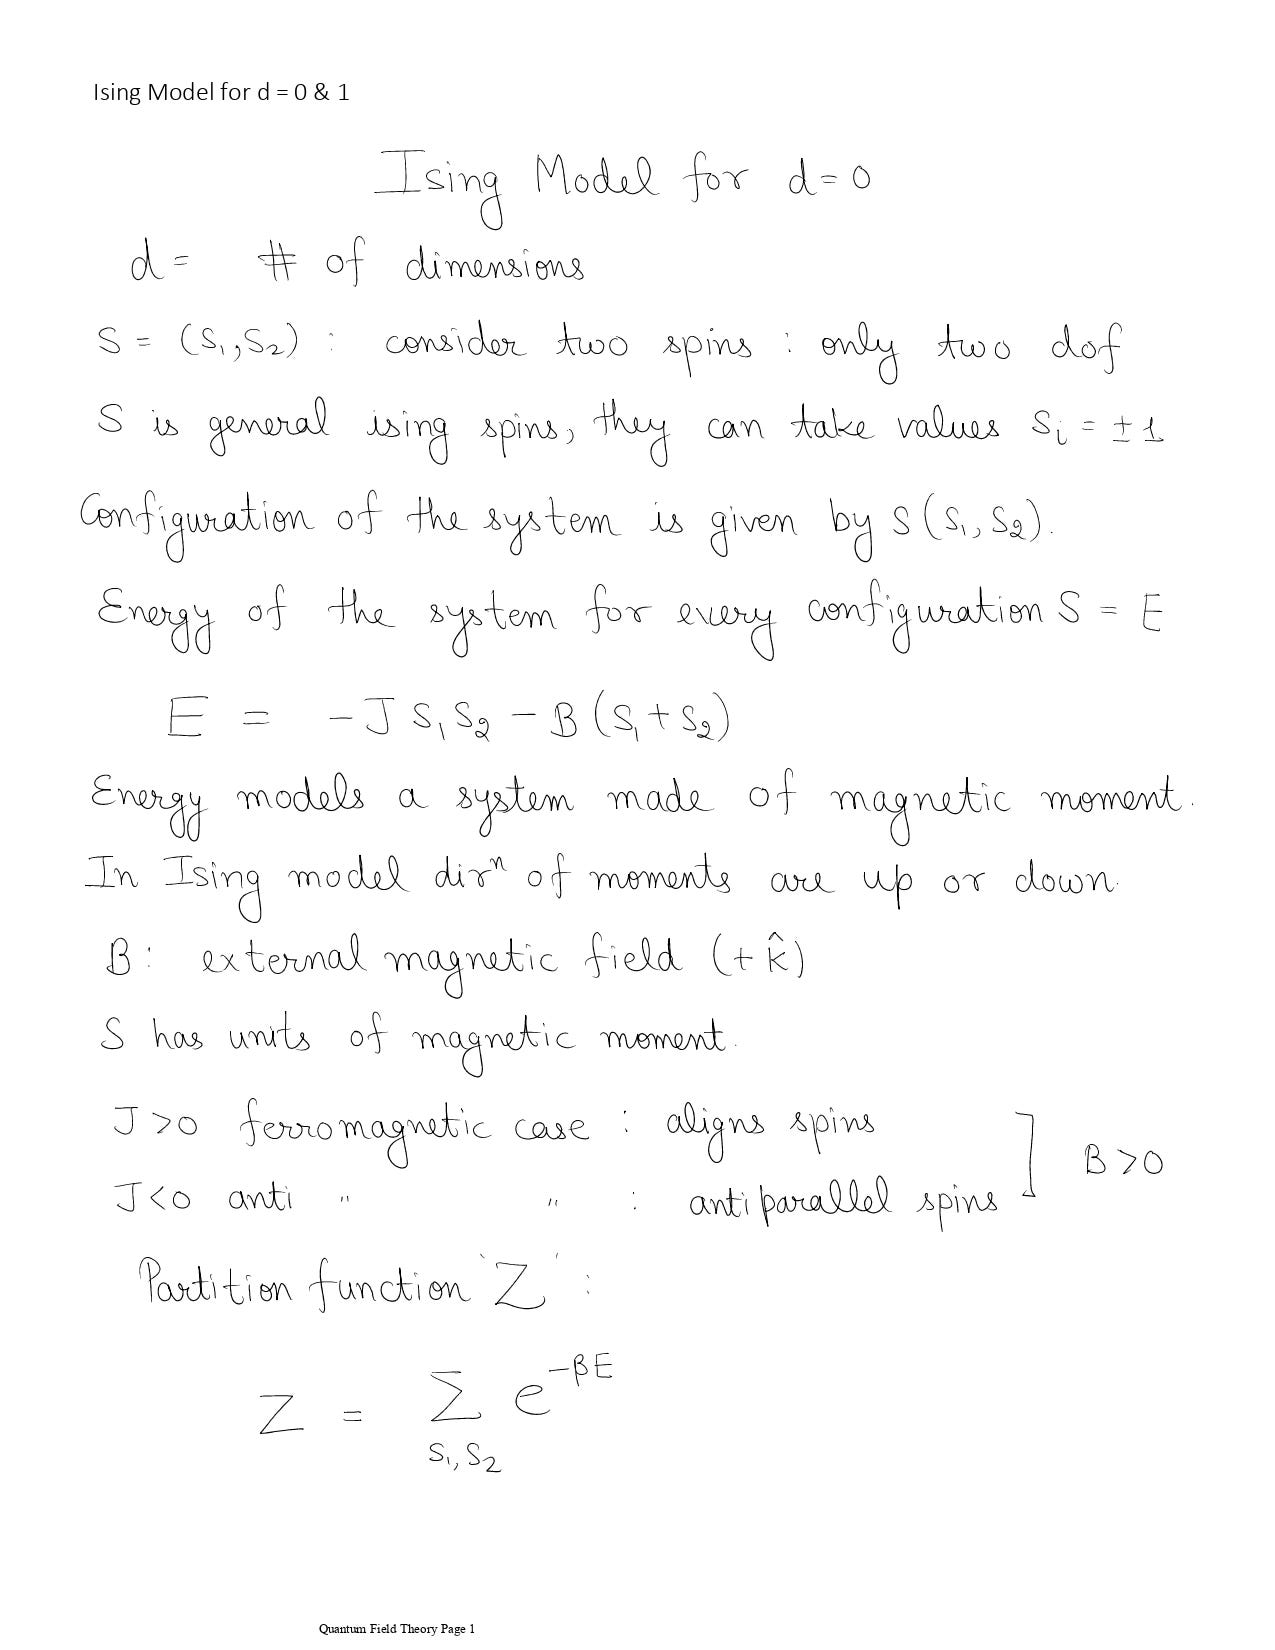 Ising Model for d = 0 & 1
Ising Model for d=0
d = # of dimensions
S = (S₁,S₂) : consider two spins : only two dof
S is general ising spins, they can take values Sᵢ = ±1
Configuration of the system is given by S(S₁, S₂).
Energy of the system for every configuration S = E
E = -J S₁S₂ - B(S₁+S₂)
Energy models a system made of magnetic moment.
In Ising model dirⁿ of moments are up or down.
B: external magnetic field (+k̂)
S has units of magnetic moment.
J>0 ferromagnetic case : aligns spins
J<0 anti " " : antiparallel spins ] B>0
Partition function 'Z' :
Z = Σ e^{-βE}
S₁, S₂
Quantum Field Theory Page 1